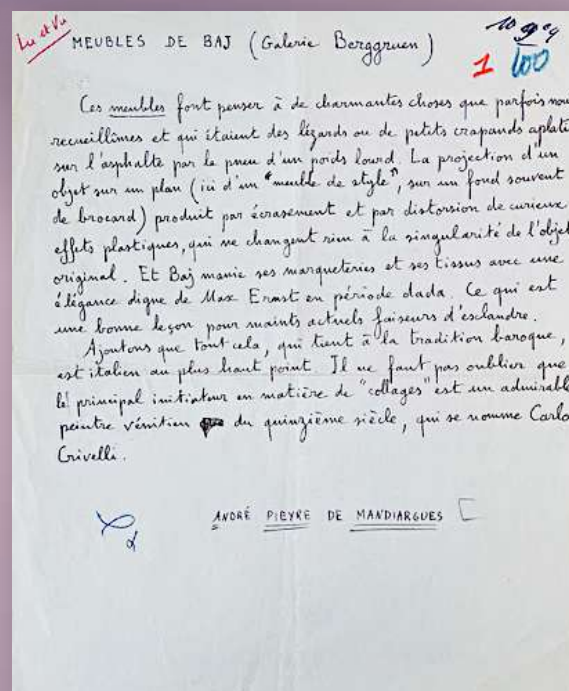 Lu et Vu
MEUBLES DE BAJ (Galerie Berggruen)
10
1 100
Ces meubles font penser à de charmantes choses que parfois nous
recueillîmes et qui étaient des lézards ou de petits crapauds aplatis
sur l'asphalte par le pneu d'un poids lourd. La projection d'un
objet sur un plan (ici d'un "meuble de style", sur un fond souvent
de brocard) produit par écrasement et par distorsion de curieux
effets plastiques, qui ne changent rien à la singularité de l'objet
original. Et Baj manie ses marqueteries et ses tissus avec une
élégance digne de Max Ernst en période dada. Ce qui est
une bonne leçon pour maints actuels faiseurs d'esclandre.
Ajoutons que tout cela, qui tient à la tradition baroque,
est italien au plus haut point. Il ne faut pas oublier que
le principal initiateur en matière de "collages" est un admirable
peintre vénitien du quinzième siècle, qui se nomme Carlo
Crivelli.
ANDRÉ PIEYRE DE MANDIARGUES